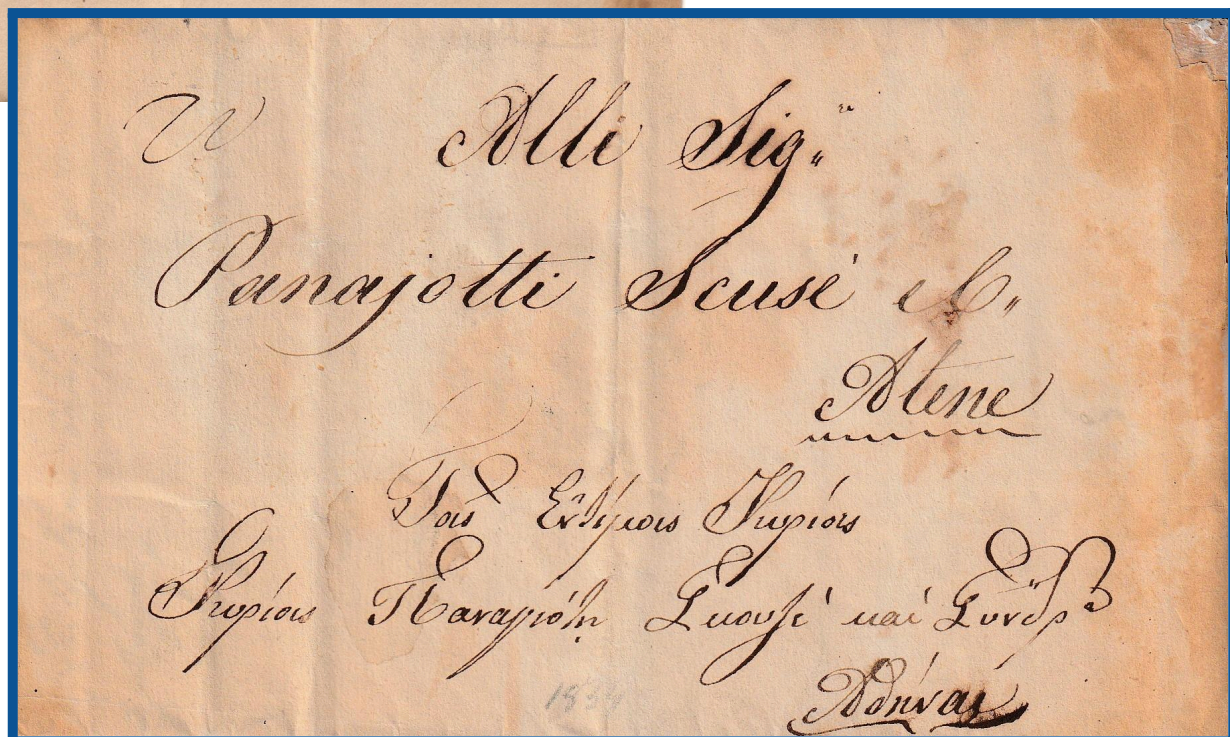 Alli Sig.ri
Panajotti Scusé e C.
Atene
Τοῖς Ἐντίμοις Κυρίοις
Κυρίοις Παναγιότη Σκουζέ καὶ Συντρ.
Ἀθήνας